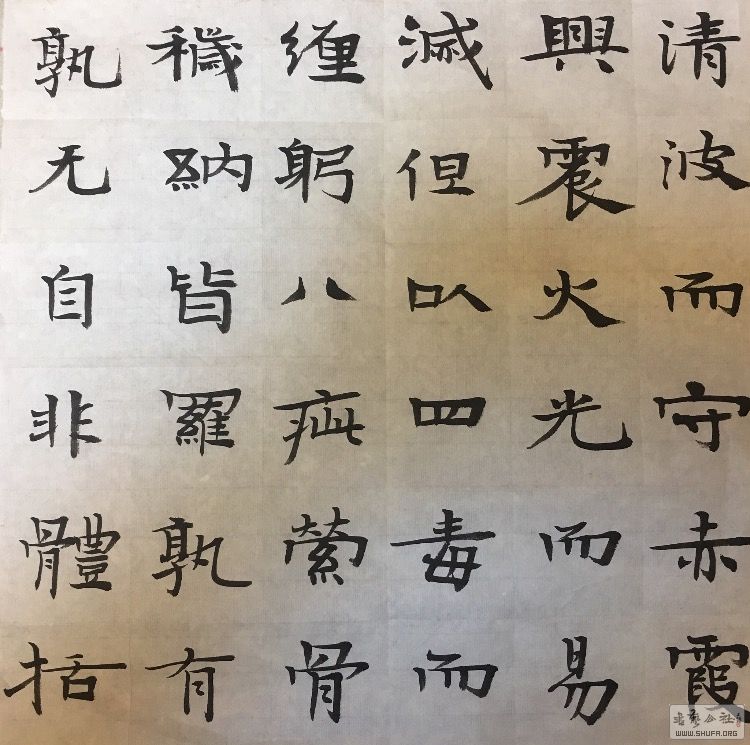 清波而守赤霞
興震火光而易
滅但以四毒而
緾躬八疵萦骨
穢納皆羅孰有
孰无自非體括
书艺公社
WWW.SHUFA.ORG